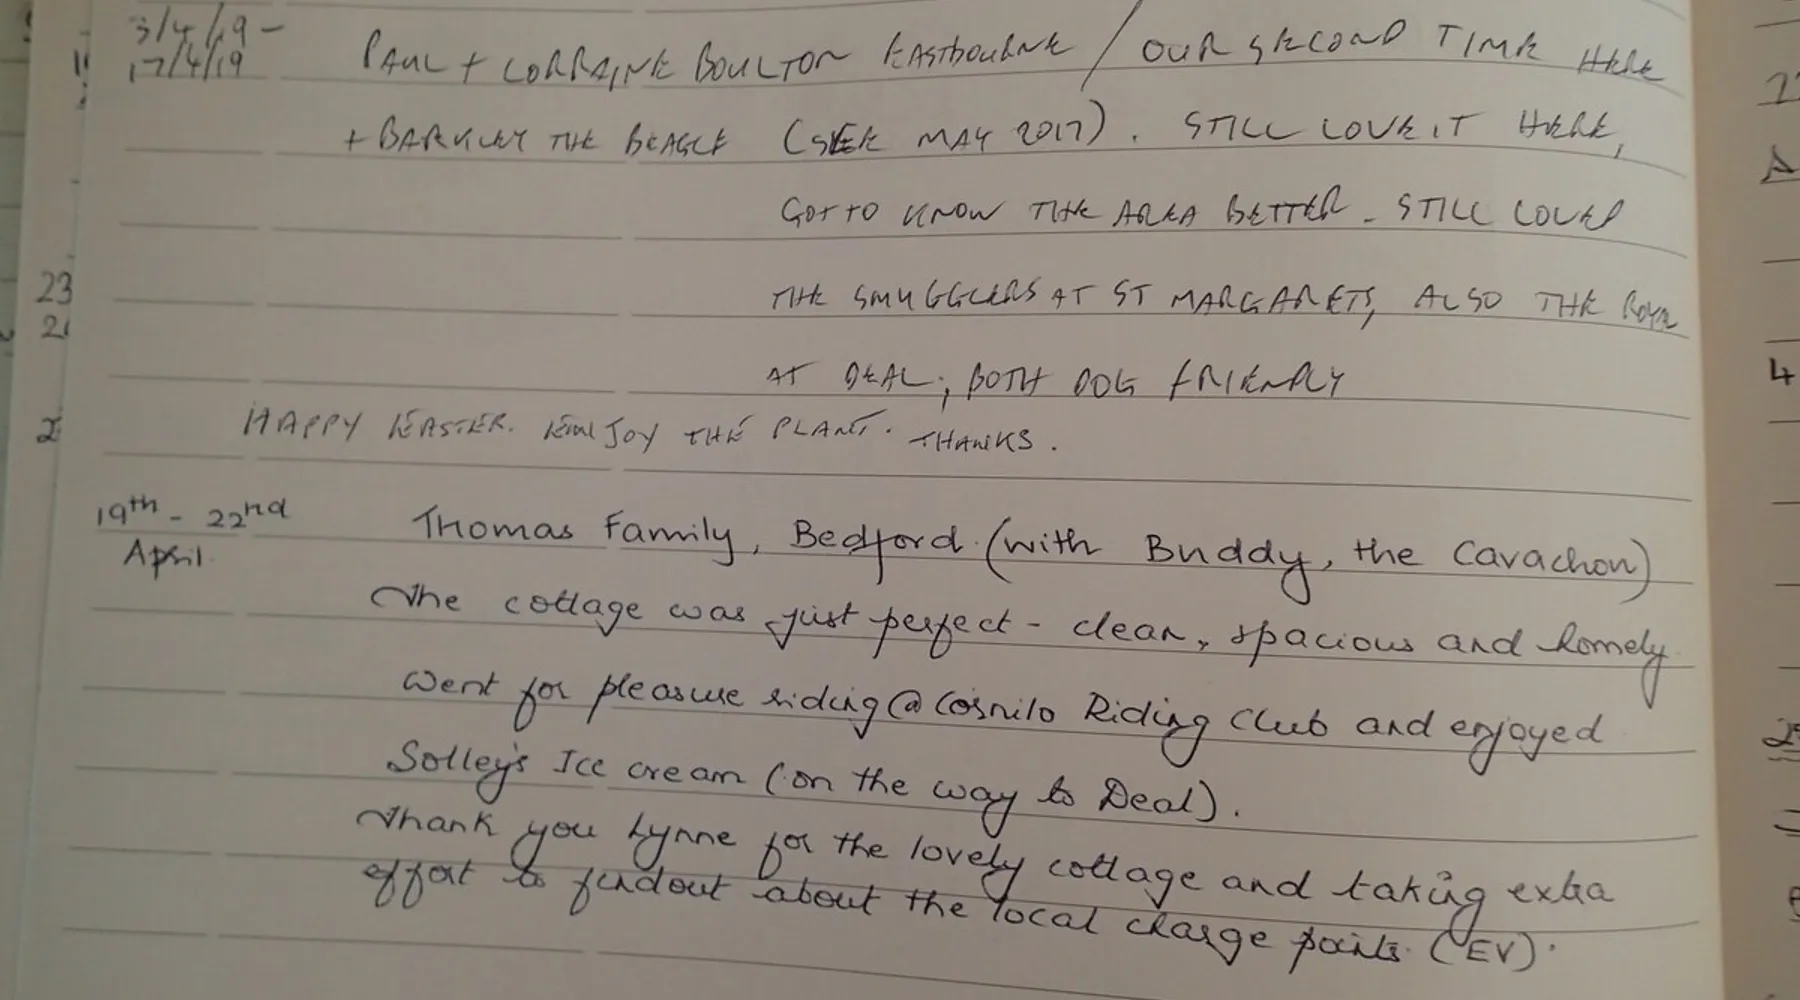 3/4/19 -
17/4/19
PAUL + LORRAINE BOULTON EASTBOURNE / OUR SECOND TIME HERE
+ BARKLEY THE BEAGLE (SEE MAY 2017). STILL LOVE IT HERE,
GOT TO KNOW THE AREA BETTER - STILL LOVED
THE SMUGGLERS AT ST MARGARETS, ALSO THE ROYAL
AT DEAL, BOTH DOG FRIENDLY
HAPPY EASTER. ENJOY THE PLANT. THANKS.
19th - 22nd
April.
Thomas Family, Bedford. (with Buddy, the Cavachon)
The cottage was just perfect - clean, spacious and homely.
Went for pleasure riding @ Cosnilo Riding Club and enjoyed
Solley's Ice cream (on the way to Deal).
Thank you Lynne for the lovely cottage and taking extra
effort to findout about the local charge points. (EV).
23
21
2
4